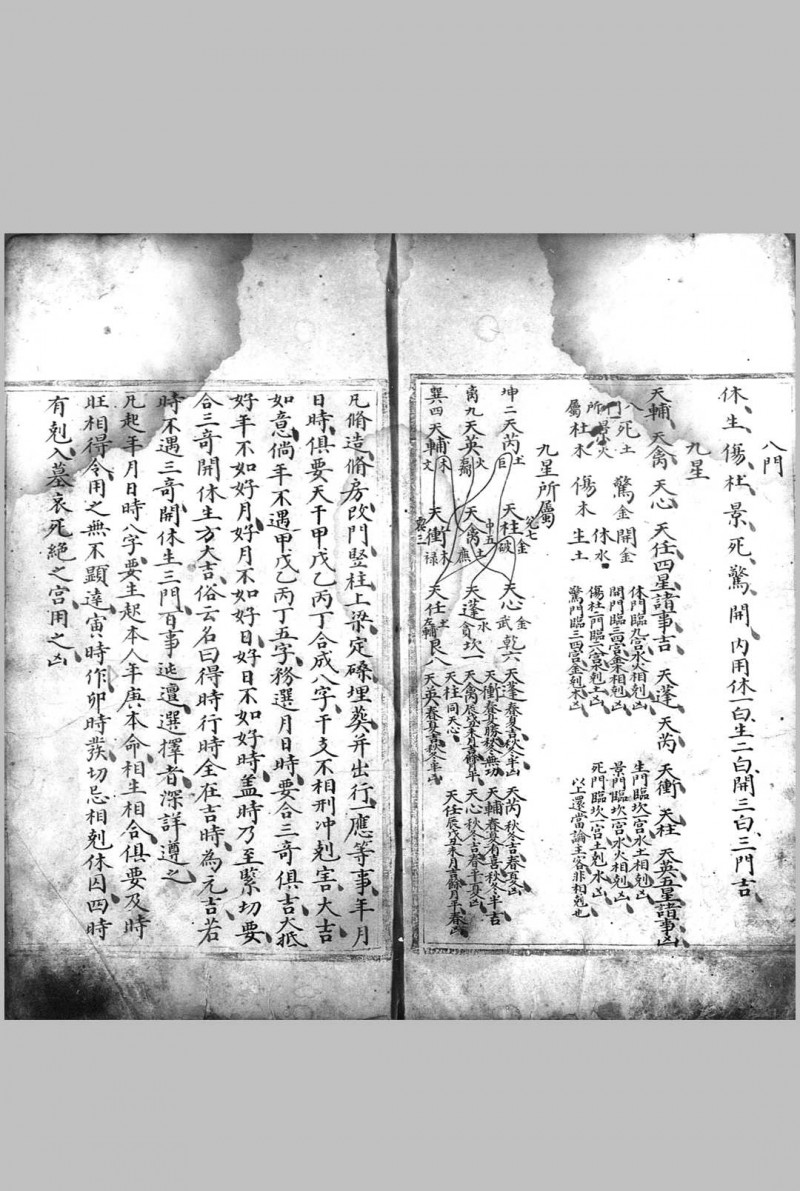 八門
休生傷杜景死驚開 內用休一白生二白開三白三門吉
九星
天輔 天禽 天心 天任四星諸事吉 天蓬 天芮 天衝 天柱 天英五星諸事凶
八門所屬
死土 驚金 開金
景火 休水
杜木 傷木 生土
休門臨九宮水火相剋凶
開門臨三四宮金木相剋凶
傷杜二門臨二八宮木剋土凶
驚門臨三四宮金剋木凶
生門臨坎一宮水土相剋凶
景門臨坎一宮水火相剋凶
死門臨坎一宮土剋水凶
以上還當論主客非相剋也
九星所屬
坤二天芮土巨 兌七天柱金破 天心金武乾六
離九天英火 中五天禽土廉 天蓬水貪坎一
巽四天輔木文 震三天衝木祿 天任土左輔艮八
天蓬春夏吉秋冬半凶
天衝春夏勝秋冬無功
天禽辰戌丑未月吉餘月半
天柱同天心
天英春夏吉秋冬半凶
天芮秋冬吉春夏凶
天輔春夏有喜秋冬半吉
天心秋冬吉春半夏凶
天任辰戌丑未月吉餘月半春凶
凡脩造脩房改門竪柱上梁定磉埋葬并出行一應等事年月
日時俱要天干甲戊乙丙丁合成八字干支不相刑冲剋害大吉
如意倘年不遇甲戊乙丙丁五字務選月日時要合三奇俱吉大抵
好年不如好月好月不如好日好日不如好時盖時乃至緊切要
合三奇開休生方大吉俗云名曰得時行時全在吉時為元吉若
時不遇三奇開休生三門百事迍邅選擇者深詳遵之
凡起年月日時八字要主起本人年庚本命相生相合俱要及時
旺相得令用之無不顯達寅時作卯時發切忌相剋休囚四時
有剋入墓衰死絕之宮用之凶